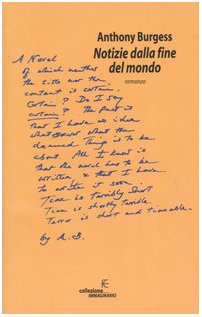 Anthony Burgess
Notizie dalla fine
del mondo
romanzo
A Novel
of which neither
the title nor the
content is certain.
Certain? Do I say
certain? The fact is
that I have no idea
whatsoever what the
damned thing is to be
about. All I know is
that the novel has to be
written & that I have
to write it soon.
Time is terribly short
Time is shortly terrible.
Terror is short and timeable.
by A. B.
collezione
IMMAGINARIO